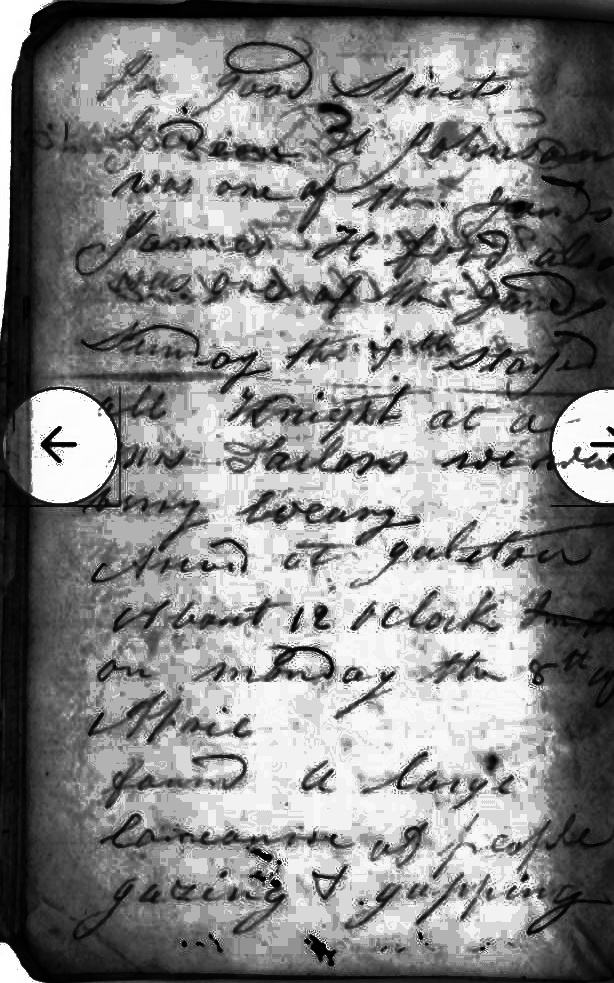 In good Spirits
H Johnson
was one of the guards
James H Ford also
was one of the guards
Sunday the 7th Stayed
all Knight at a
Tailors we
very weary
Arivd at galston
About 12 oclock
on monday the 8th of
April
found a large
concorse of people
gazing & gapping